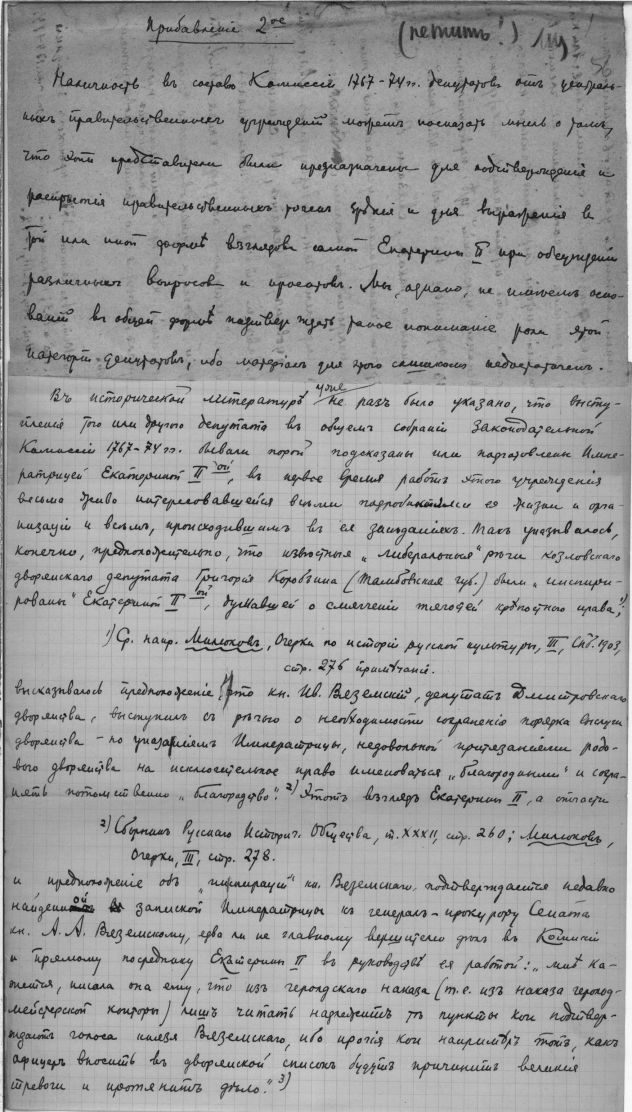 Прибавленіе 2ое
(петитъ!)
56
Наличность въ составѣ Комиссіи 1767-74 гг. депутатовъ отъ централь-
ныхъ правительственныхъ учрежденій можетъ показать мысль о томъ,
что эти представители были предназначены для подтвержденія и
раскрытія правительственныхъ точекъ зрѣнія и для выраженія въ
той или иной формѣ взглядовъ самой Екатерины II при обсужденіи
различныхъ вопросовъ и проектовъ. Мы, однако, не имѣемъ осно-
ваній въ общей формѣ подтверждать такое пониманіе роли этой
категоріи депутатовъ, ибо матеріалъ для этого слишкомъ недостаточенъ.
Въ исторической литературѣ уже не разъ было указано, что высту-
пленія того или другого депутата въ общемъ собраніи Законодательной
Комиссіи 1767-74 гг. бывали порой подсказаны или подготовлены Импе-
ратрицей Екатериной II ой, въ первое время работъ этого учрежденія
весьма живо интересовавшейся всѣми подробностями ея жизни и орга-
низаціи и всѣмъ, происходившимъ въ ея засѣданіяхъ. Такъ указывалось,
конечно, предположительно, что извѣстныя „либеральныя" рѣчи козловскаго
дворянскаго депутата Григорія Коробьина (Тамбовская губ.) были „инспири-
рованы" Екатериной II ой, думавшей о смягченіи тягостей крѣпостного права; 1)
1) Ср. напр. Милюковъ, Очерки по исторіи русской культуры, III, Спб. 1903,
стр. 276 примѣчаніе.
высказывалось предположеніе, что кн. Ив. Вяземскій, депутатъ Дмитровскаго
дворянства, выступилъ съ рѣчью о необходимости сохраненія порядка выслуги
дворянства - по указаніямъ Императрицы, недовольной притязаніями родо-
вого дворянства на исключительное право именоваться „благородными" и сохра-
нять потомственно „благородство". 2) Этотъ взглядъ Екатерины II, а отчасти
2) Сборникъ Русскаго Историч. Общества, т. XXXII, стр. 260; Милюковъ,
Очерки, III, стр. 278.
и предположеніе объ „инспираціи" кн. Вяземскаго подтверждается недавно
найденной запиской Императрицы къ генералъ-прокурору Сената
кн. А. А. Вяземскому, едва ли не главному вершителю дѣлъ въ Комиссіи
и прямому посреднику Екатерины II въ руководствѣ ея работой: „мнѣ ка-
жется, писала она ему, что изъ герольдскаго наказа (т.е. изъ наказа герольд-
мейстерской конторы) лишь читать надлежитъ тѣ пункты кои подтвер-
ждаютъ голоса князя Вяземскаго, ибо прочія кои напримѣръ тотъ, какъ
офицеръ вносить въ дворянской списокъ будутъ причинить великія
тревоги и протянитъ дѣло." 3)